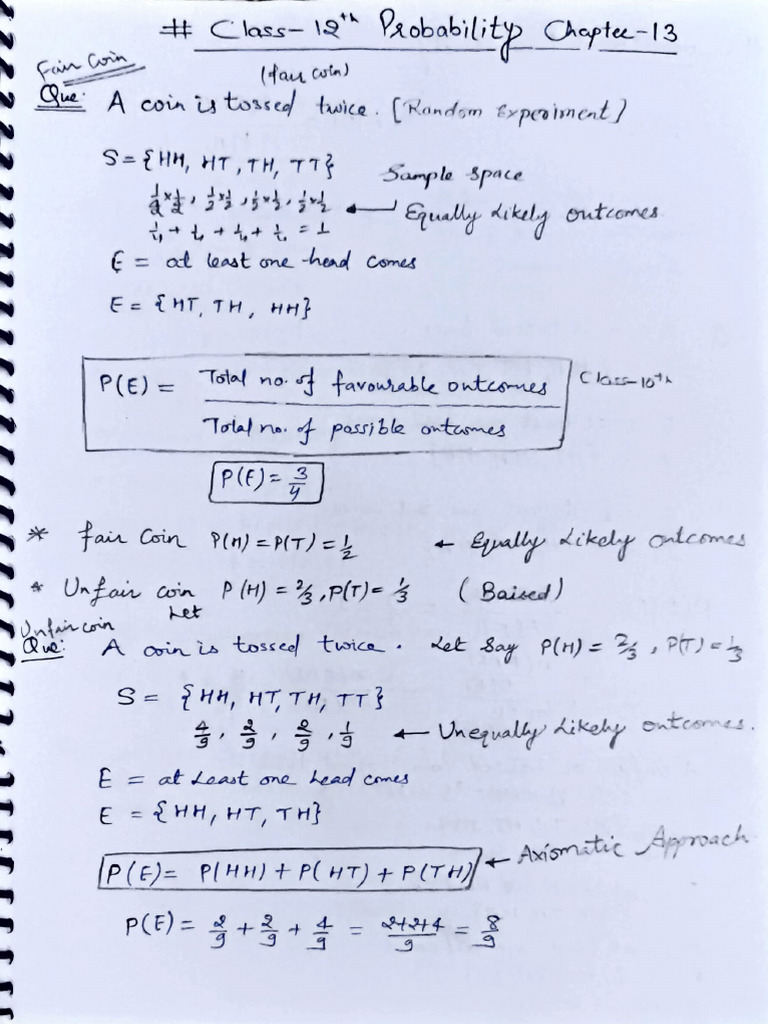 # Class-12th Probability Chaptee-13
Fair Coin
(fair coin)
Que: A coin is tossed twice. [Random Experiment]
S = {HH, HT, TH, TT} Sample space
1/2 × 1/2, 1/2 × 1/2, 1/2 × 1/2, 1/2 × 1/2 ← Equally Likely outcomes
1/4 + 1/4 + 1/4 + 1/4 = 1
E = at least one head comes
E = {HT, TH, HH}
P(E) = Total no. of favourable outcomes / Total no. of possible outcomes Class-10th
P(E) = 3/4
* fair Coin P(H) = P(T) = 1/2 ← Equally Likely outcomes
* Unfair coin P(H) = 2/3, P(T) = 1/3 (Baised)
Let
Unfair coin
Que: A coin is tossed twice. Let Say P(H) = 2/3, P(T) = 1/3
S = {HH, HT, TH, TT}
4/9, 2/9, 2/9, 1/9 ← Unequally Likely outcomes.
E = at least one head comes
E = {HH, HT, TH}
P(E) = P(HH) + P(HT) + P(TH) ← Axiomatic Approach
P(E) = 2/9 + 2/9 + 4/9 = 2+2+4/9 = 8/9